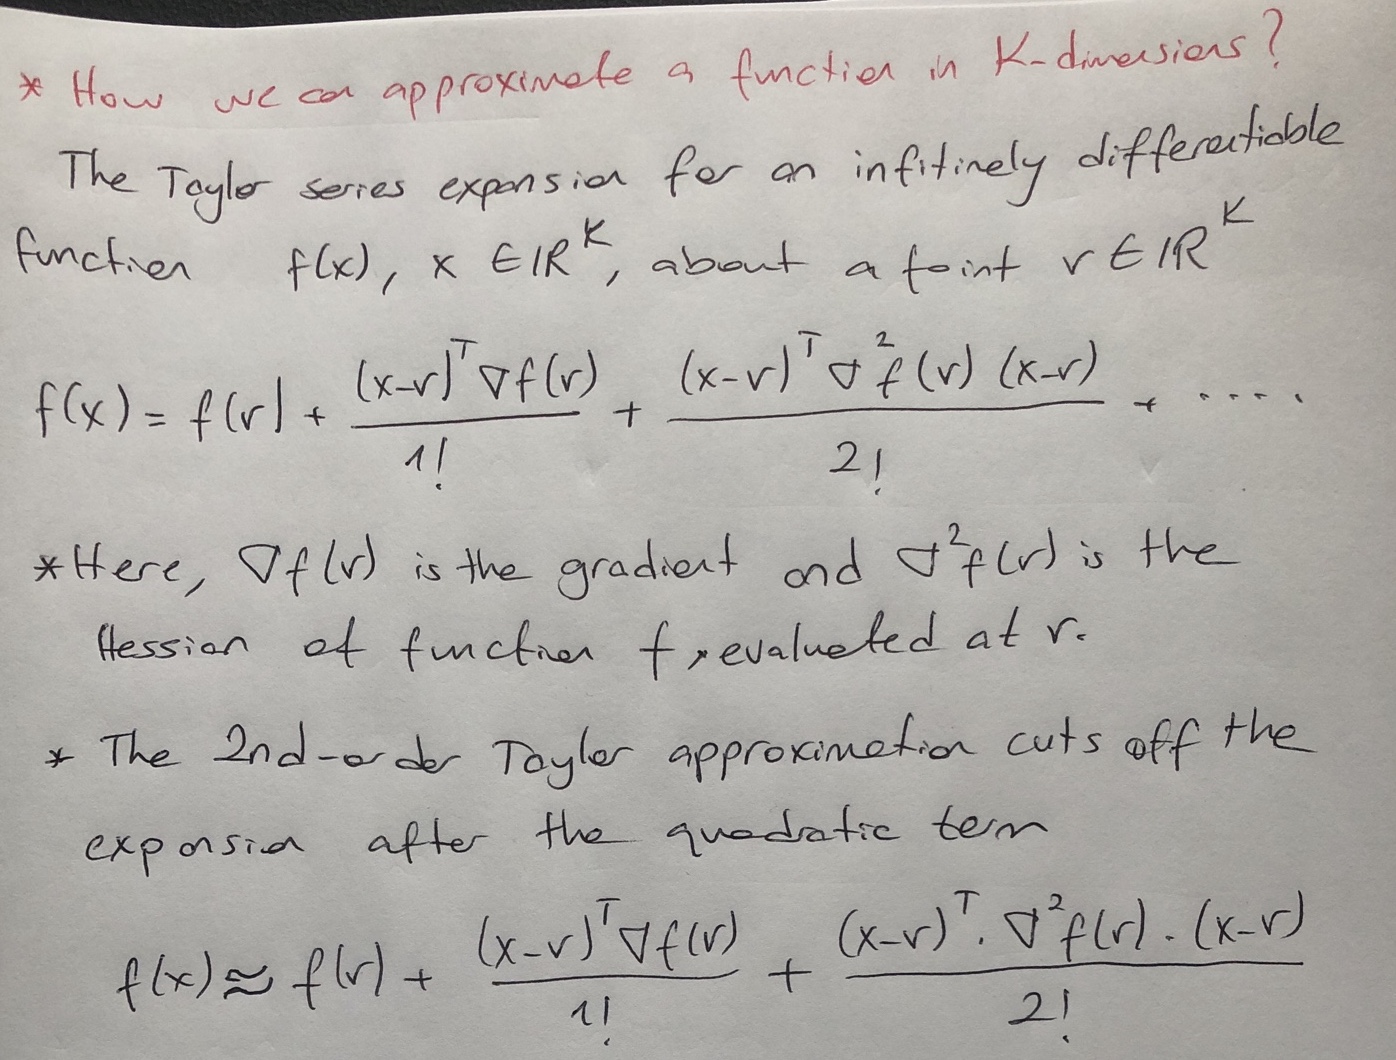 * How we can approximate a function in K-dimensions?
The Taylor series expansion for an infitinely differentiable
function f(x), x ∈ ℝ^K, about a point r ∈ ℝ^K
f(x) = f(r) + (x-r)^T ∇f(r) / 1! + (x-r)^T ∇²f(r) (x-r) / 2! + .....
* Here, ∇f(r) is the gradient and ∇²f(r) is the
Hessian of function f, evaluated at r.
* The 2nd-order Taylor approximation cuts off the
expansion after the quadratic term
f(x) ≈ f(r) + (x-r)^T ∇f(r) / 1! + (x-r)^T . ∇²f(r) . (x-r) / 2!